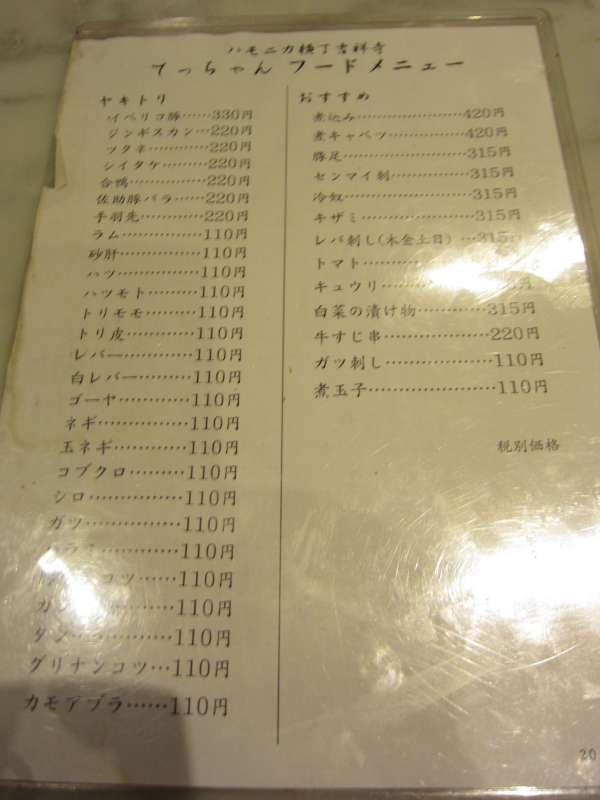 ハモニカ横丁吉祥寺
てっちゃん フードメニュー
ヤキトリ
イベリコ豚……330円
ジンギスカン…220円
ツクネ…………220円
シイタケ………220円
合鴨……………220円
佐助豚バラ……220円
手羽先…………220円
ラム……………110円
砂肝……………110円
ハツ……………110円
ハツモト………110円
トリモモ………110円
トリ皮…………110円
レバー…………110円
白レバー………110円
ゴーヤ…………110円
ネギ……………110円
玉ネギ…………110円
コブクロ………110円
シロ……………110円
ガツ……………110円
ハラミ…………110円
コツ……110円
ガン…………110円
タン……………110円
ダリナンコツ…110円
カモアブラ……110円
おすすめ
煮込み…………………420円
煮キャベツ……………420円
豚足……………………315円
センマイ刺……………315円
冷奴……………………315円
キザミ…………………315円
レバ刺し(木金土日)…315円
トマト…………………
キュウリ………………円
白菜の漬け物…………315円
牛すじ串………………220円
ガツ刺し………………110円
煮玉子…………………110円
税別価格
20